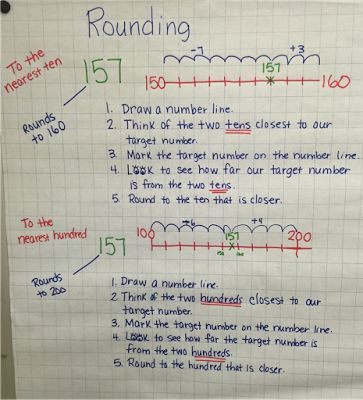 Rounding
To the
nearest ten
157
-7
+3
157
150
160
Rounds
to 160
1. Draw a number line.
2. Think of the two tens closest to our
target number.
3. Mark the target number on the number line.
4. Look to see how far our target number
is from the two tens.
5. Round to the ten that is closer.
To the
nearest hundred
157
+4
100
157
200
150
160
Rounds
to 200
1. Draw a number line.
2 Think of the two hundreds closest to our
target number.
3. Mark the target number on the number line.
4. Look to see how far the target number is
from the two hundreds.
5. Round to the hundred that is closer.